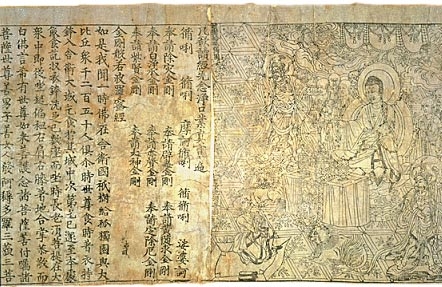 凡欲讀經先念淨口業真言遍
脩唎 脩唎 摩訶脩唎 脩脩唎 娑婆訶
奉請除災金剛 奉請辟毒金剛 奉請黃隨求金剛
奉請白淨水金剛 奉請赤聲金剛 奉請定除厄金剛
奉請紫賢金剛 奉請大神金剛
金剛般若波羅蜜經
如是我聞一時佛在舍衛國祇樹給孤獨園與大
比丘眾千二百五十人俱尒時世尊食時著衣持
鉢入舍衛大城乞食於其城中次第乞已還至本處
飯食訖收衣鉢洗足已敷座而坐時長老須菩提在大
眾中即從座起偏袒右肩右膝著地合掌恭敬而
白佛言希有世尊如來善護念諸菩薩善付囑諸
菩薩世尊善男子善女人發阿耨多羅三藐三菩